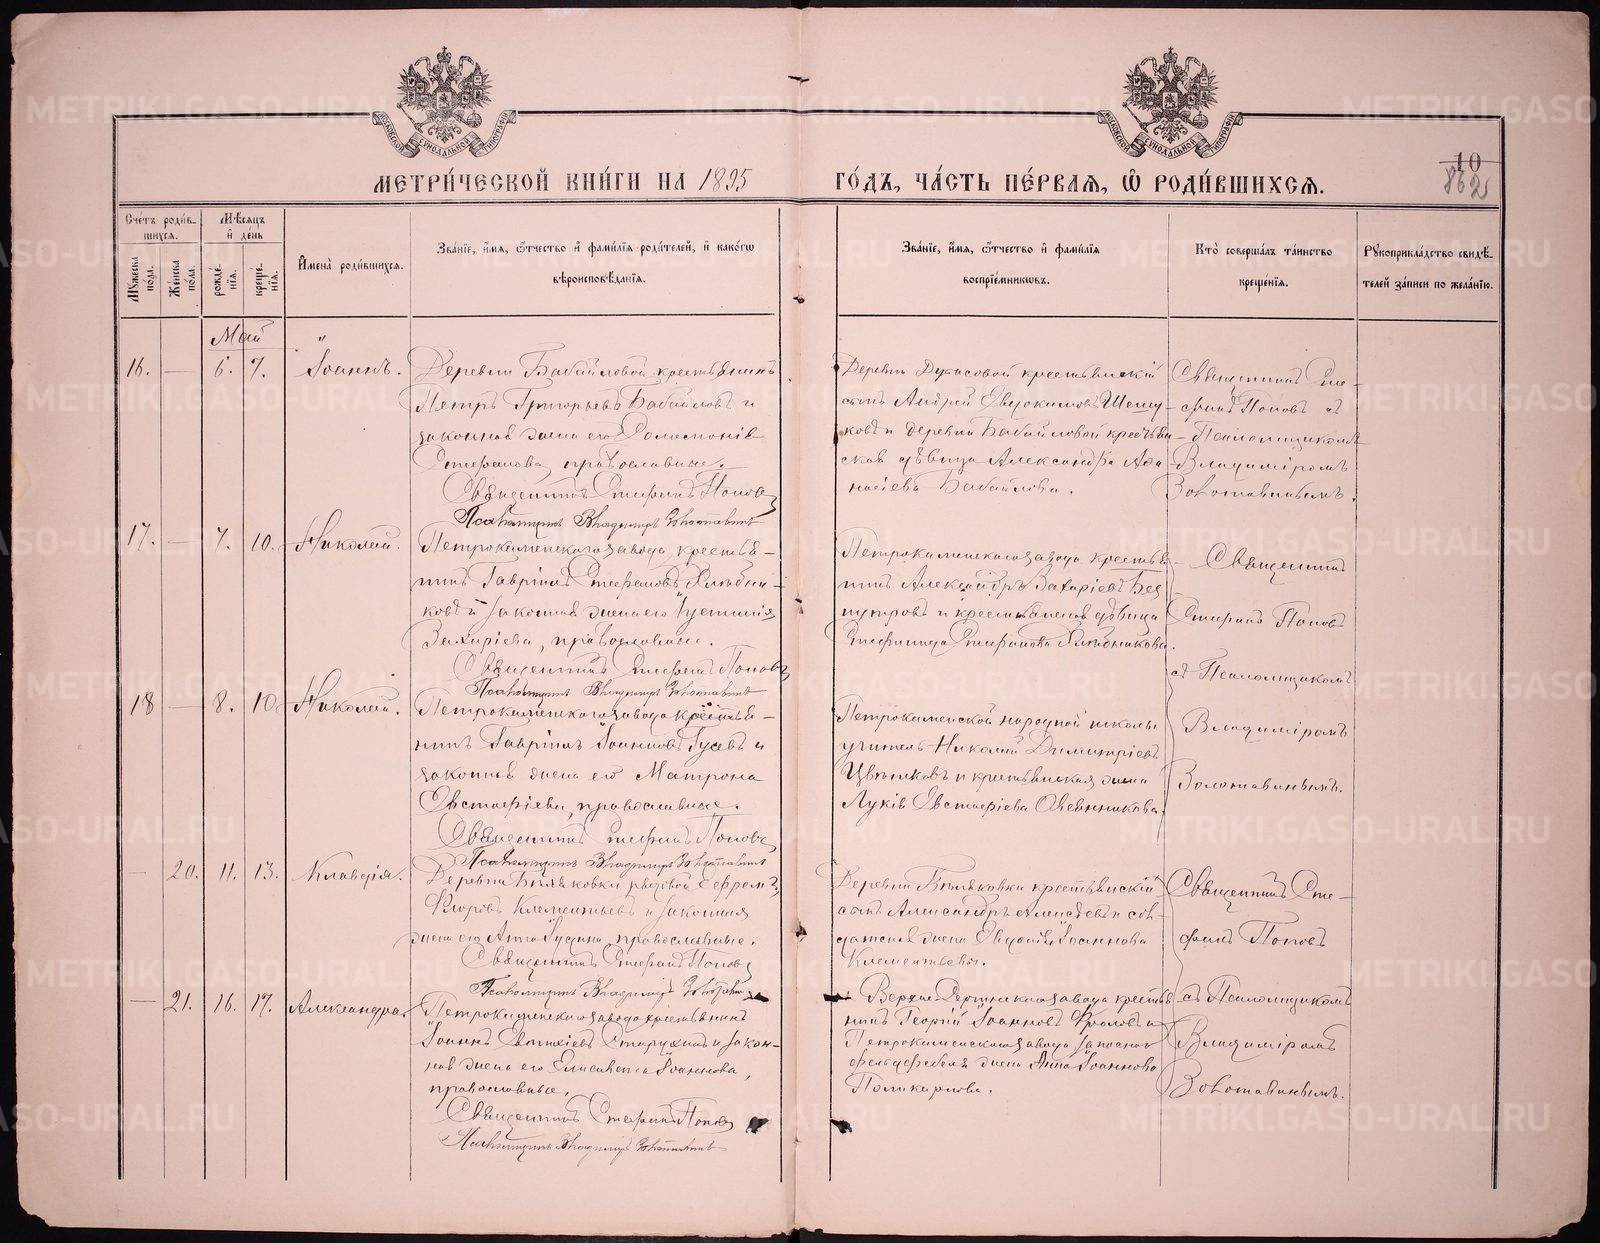 МОСКОВСКОЙ СѴНОДАЛЬНОЙ ТИПОГРАФІИ
МОСКОВСКОЙ СѴНОДАЛЬНОЙ ТИПОГРАФІИ
МЕТРИ́ЧЕСКОЙ КНИ́ГИ НА 1895
ГО́ДЪ, ЧА́СТЬ ПЕ́РВАЯ, Ѡ҆ РОДИ́ВШИХСЯ.
10
862
Сче́тъ роди́вшихся.
Мѣ́сяцъ и҆ де́нь
Мꙋ́жеска по́ла.
Же́нска по́ла.
рожде́нїя.
креще́нїя.
И҆мена̀ роди́вшихся.
Зва́нїе, и҆́мя, ѻ҆́тчество и҆ фами́лїя роди́телей, и҆ како́гѡ
вѣроисповѣ́данїя.
Зва́нїе, и҆́мя, ѻ҆́тчество и҆ фами́лїя
воспрїе́мникѡвъ.
Кто̀ соверша́лъ та́инство
креще́нїя.
Рꙋкоприкла́дство свидѣ́-
телей за́писи по жела́нїю.
Май
16. — 6. 7. Іоаннъ.
Деревни Бабайловой крестьянинъ
Петръ Григорьевъ Бабайловъ и
законная жена его Соломонія
Стефанова, православные.
Священникъ Стефанъ Поповъ
Псаломщикъ Владимиръ Золотавинъ
Деревни крестьянскій
сынъ Андрей Евдокимовъ Шешу-
ковъ и деревни Бабайловой крестьян-
ская дѣвица Александра Афа
насіева Бабайлова.
Священникъ Сте-
фанъ Поповъ съ
Псаломщикомъ
Владиміромъ
Золотавинымъ.
17. — 7. 10. Николай.
Петрокаменскаго завода, крестья-
нинъ Гавріилъ Стефановъ Ялыбни-
ковъ и законная жена его Іустинія
Захаріева, православные.
Священникъ Стефанъ Поповъ
Псаломщикъ Владимиръ Золотавинъ
Петрокаменскаго завода крестья
нинъ Александръ Захаріевъ Без
и крестьянская дѣвица
Стефанова
Священникъ
Стефанъ Поповъ
съ Псаломщикомъ
Владиміромъ
Золотавинымъ.
18 — 8. 10 Николай.
Петрокаменскаго завода крестья-
нинъ Гавріилъ Іоанновъ Гусевъ и
законная жена его Матрона
Евстафіева, православные.
Священникъ Стефанъ Поповъ
Псаломщикъ Владимиръ Золотавинъ
Петрокаменской народной школы
учитель Николай Димитріевъ
Цвѣтковъ и крестьянская жена
Лукія Евстафіева Овчинникова.
— 20. 11. 13. Клавдія.
Деревни Бѣляковки рядовой Ефремъ
Флоровъ Клементьевъ и законная
жена его Анна православные.
Священникъ Стефанъ Поповъ
Псаломщикъ Владимиръ Золотавинъ
Деревни Бѣляковки крестьянскій
сынъ Александръ Алексѣевъ и сол-
датская жена Евдокія Іоаннова
Клементьева.
Священникъ Сте-
фанъ Поповъ
— 21. 16. 17. Александра.
Петрокаменскаго завода крестьянинъ
Іоаннъ Евтихіевъ Старухинъ и закон-
ная жена его Елисавета Іоаннова,
православные.
Священникъ Стефанъ Поповъ
Псаломщикъ Владимиръ Золотавинъ
Верхне завода крестья
нинъ Георгій Іоанновъ Фроловъ и
Петрокаменскаго завода запаснаго
фельдфебеля жена Анна Іоаннова
Поликарпова.
съ Псаломщикомъ
Владиміромъ
Золотавинымъ.
METRIKI.GASO-URAL.RU